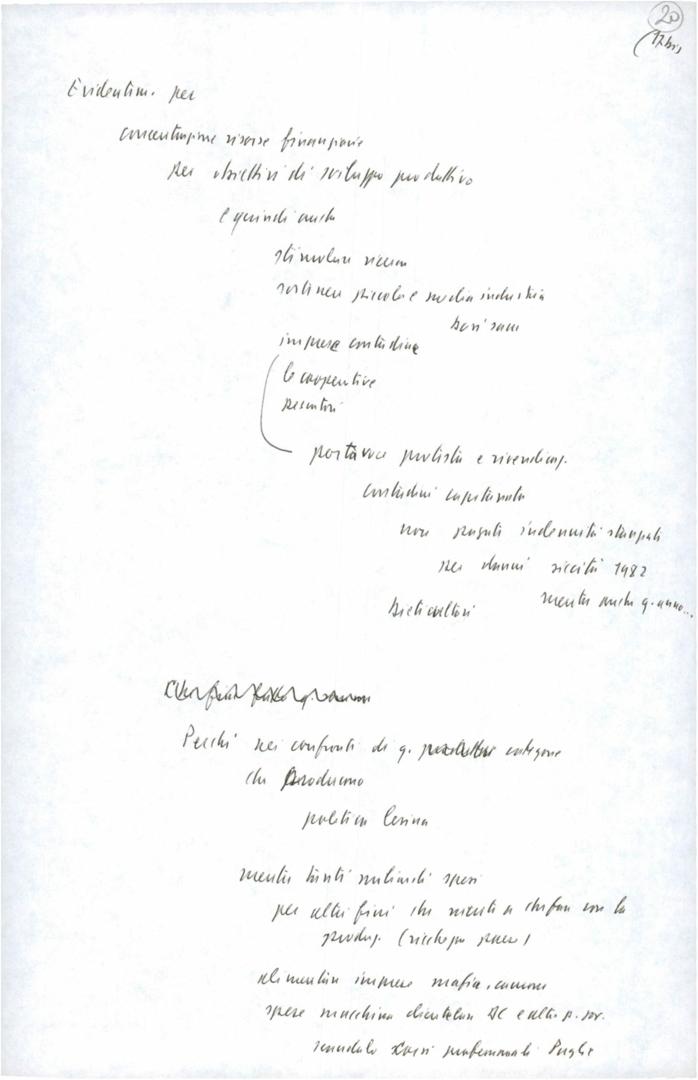 20
17 bis
Evidentem. per
concentrazione risorse finanziarie
per obiettivi di sviluppo produttivo
e quindi anche
stimolare ricerca
sostenere piccola e media industria
imprese contadine
le cooperative
pescatori
portavoce protesta e rivendicaz.
contadini capitanata
non pagati indennità stanziati
per danni siccità 1982
mentre anche q. anno...
bieticoltori
Perché nei confronti di q. categorie
che producono
politica lesina
mentre tanti miliardi spesi
per altri fini che niente a che fare con la
produz. (ricchezza paese)
alimentare imprese mafia, camorra
spese macchina clientelare DC e altri p. gov.
scandalo corsi professionali Puglie